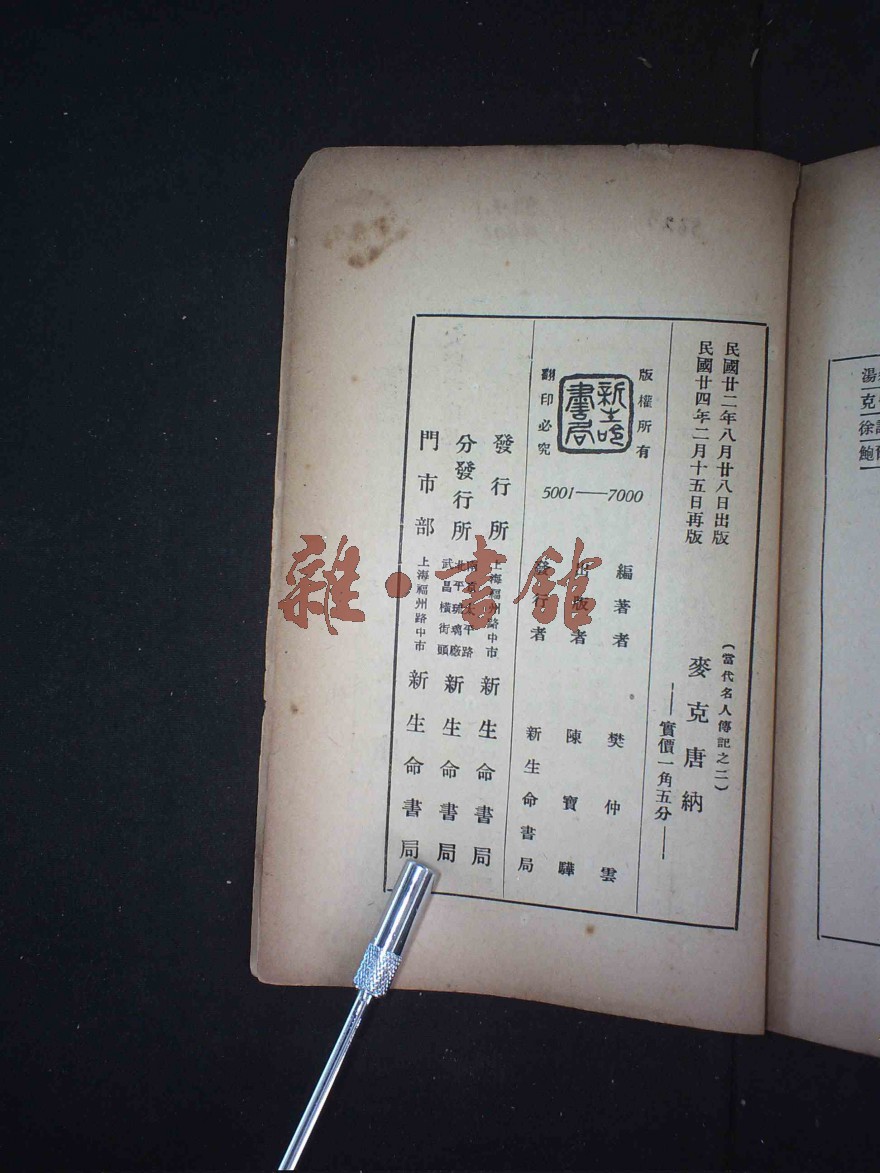 民國廿二年八月廿八日出版
民國廿四年二月十五日再版
(當代名人傳記之二)
麥克唐納
——實價一角五分——
版權所有
新生命書局
翻印必究
5001——7000
編著者 樊仲雲
出版者 陳寶驊
發行者 新生命書局
發行所 上海福州路中市 新生命書局
分發行所 南京太平路 北平琉璃廠 武昌橫街頭 新生命書局
門市部 上海福州路中市 新生命書局
雜·書館
湯
克
徐
鮑